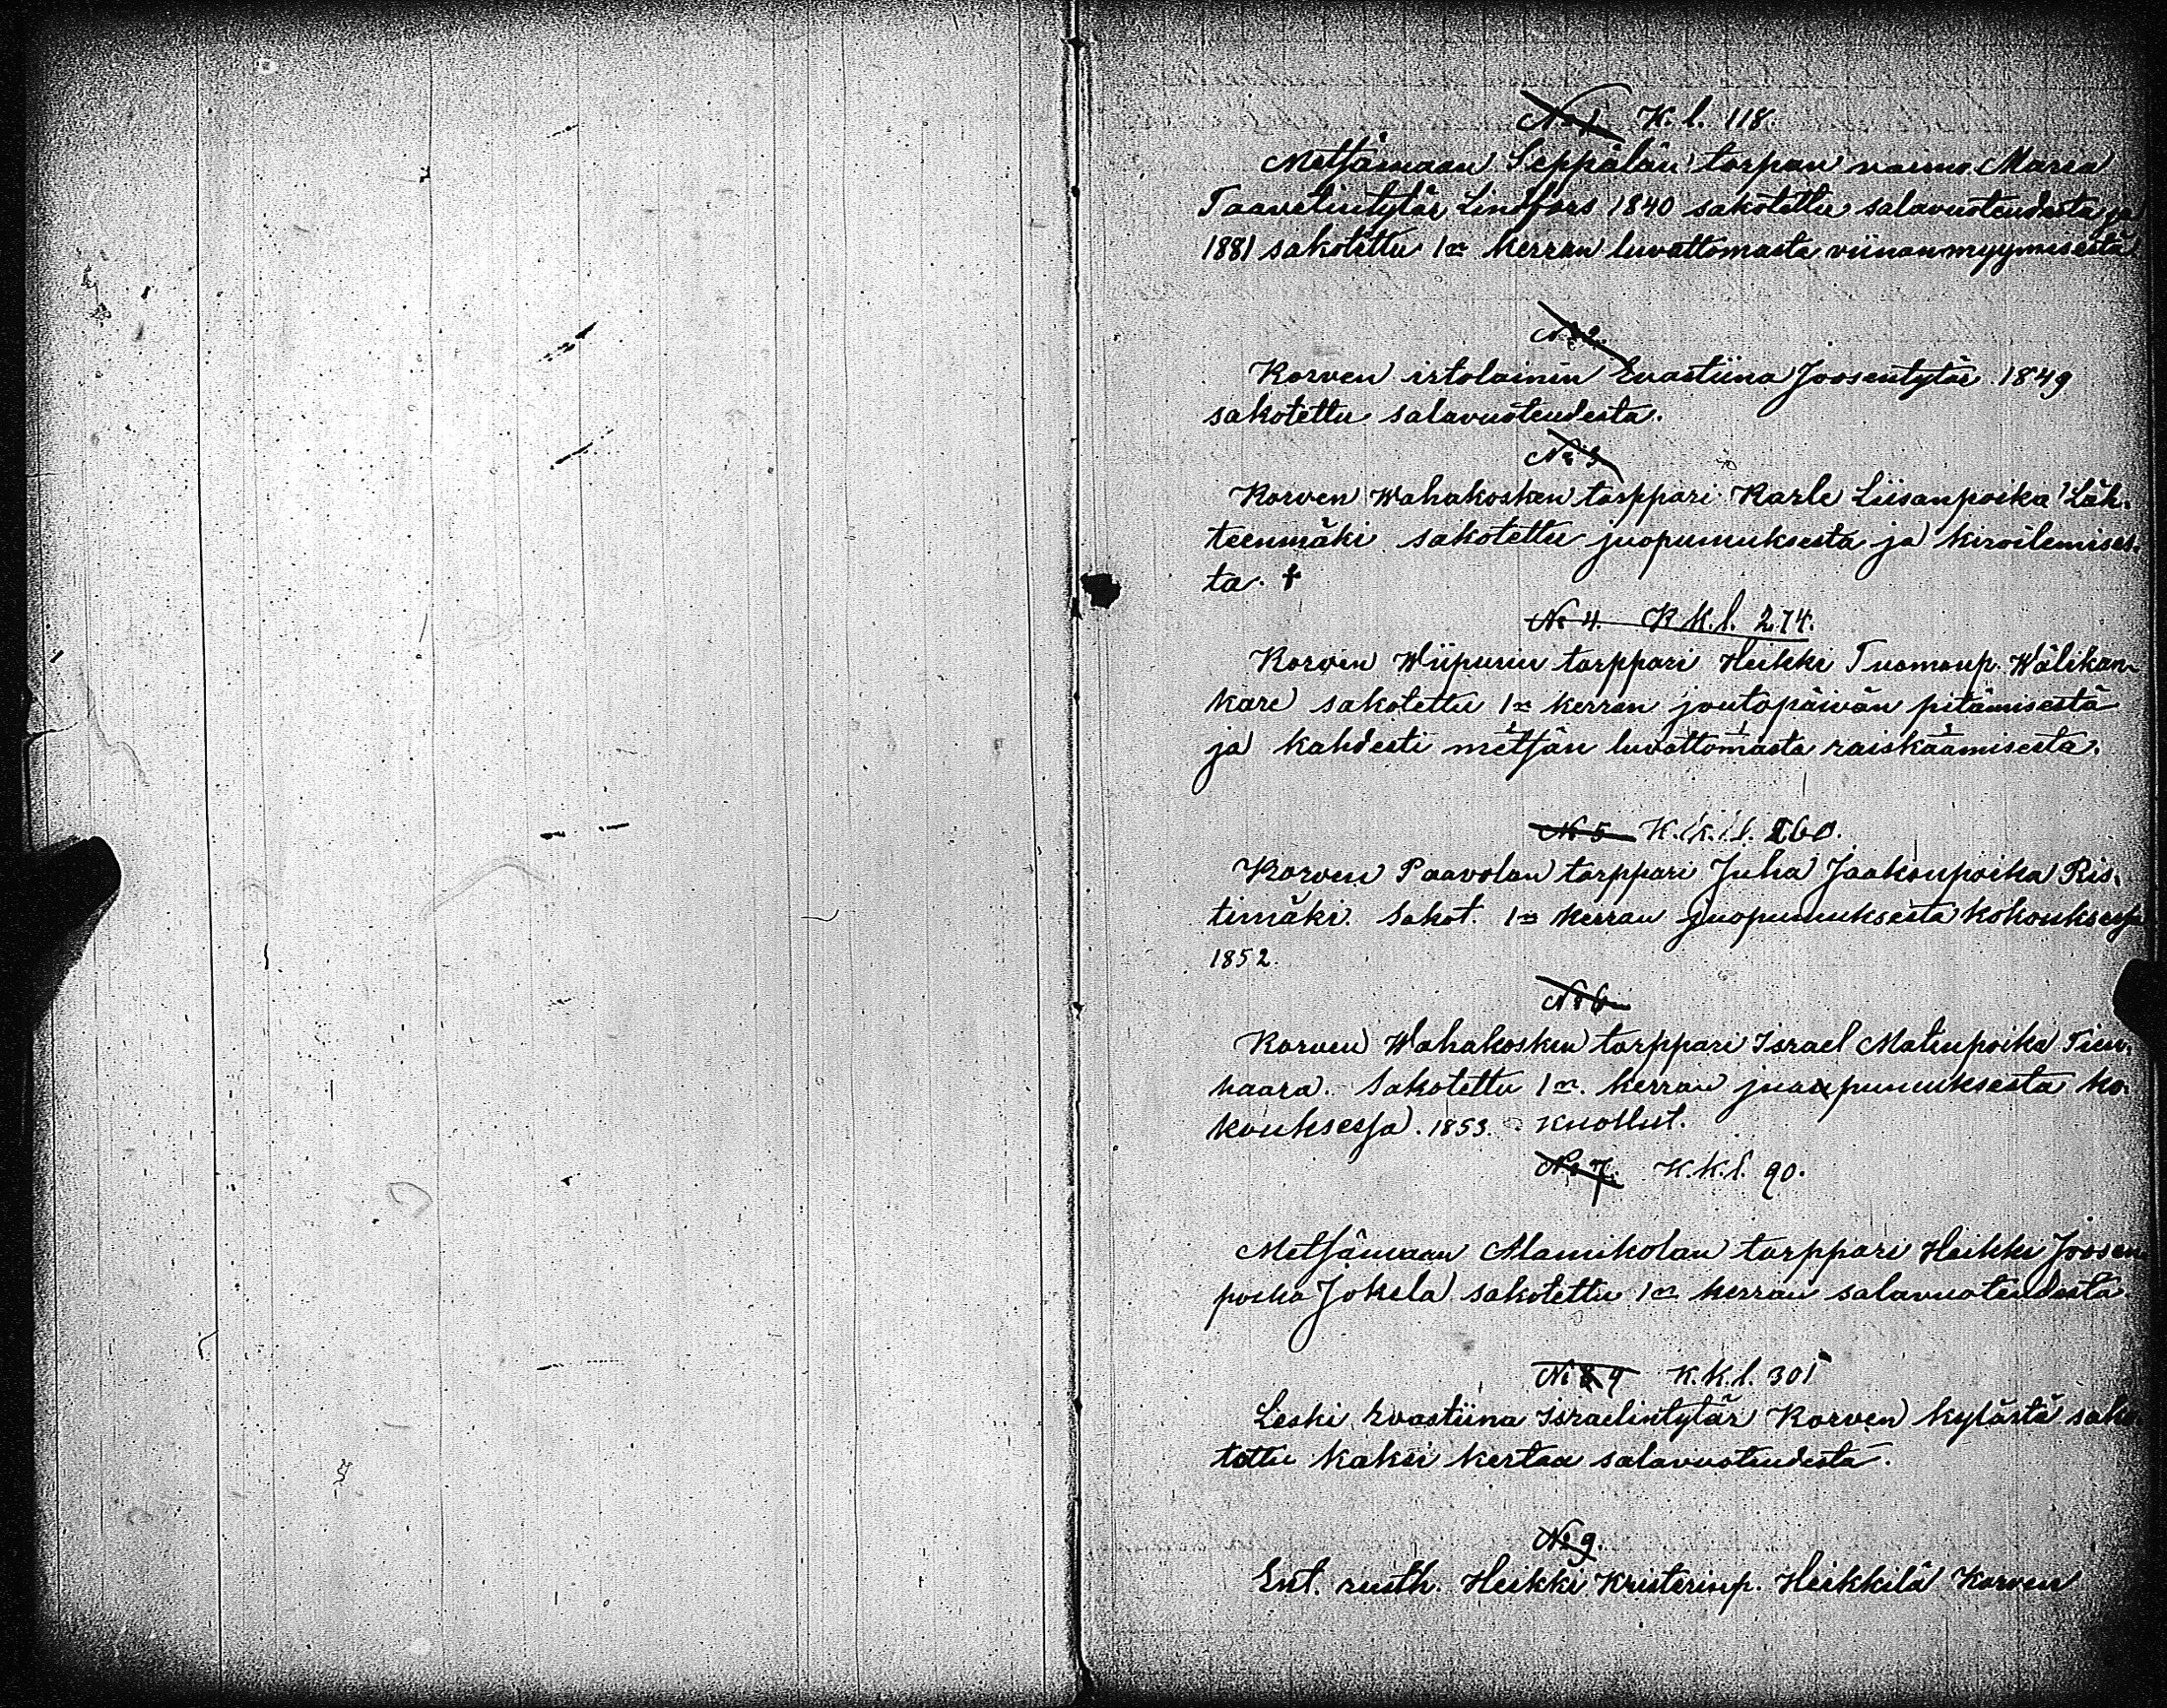 No 1. K. l. 118.
Metsämaan Seppälän torpan vaimo Maria
Taavetintytär Lindfors 1840 sakotettu salavuoteudesta ja
1881 sakotettu 1n kerran luvattomasta viinanmyymisestä
No 2.
Korven irtolainin Evastiina Joosentytär 1849
sakotettu salavuoteudesta.
No 3
Korven Wahakosken torppari Karle Liisanpoika Läh-
teenmäki sakotettu juopumuksesta ja kiroilemises-
ta. †
No 4. K K. l. 274.
Korven Wiipurin torppari Heikki Tuomanp. Wälikan-
kare sakotettu 1n kerran joutopäivän pitämisestä
ja kahdesti metsän luvattomasta raiskäämisestä.
No 5 K. K. l. 260.
Korven Paavolan torppari Juha Jaakonpoika Ris-
timäki. Sakot. 1n kerran juopumuksesta kokouksessa
1852.
No 6
Korven Wahakosken torppari Israel Matinpoika Tien-
haara. Sakotettu 1n. kerran juopumuksesta ko-
kouksessa. 1853. Kuollut.
No 7. K. K. l. 90.
Metsämaan Alamikolan torppari Heikki Joosen
poika Jokela sakotettu 1n kerran salavuoteudesta.
No 8 9 K. K. l. 301
Leski Evastiina Israelintytär Korven kylästä sako
tettu kaksi kertaa salavuoteudesta.
No 9.
Ent. rusth. Heikki Kristerinp. Heikkilä Korven